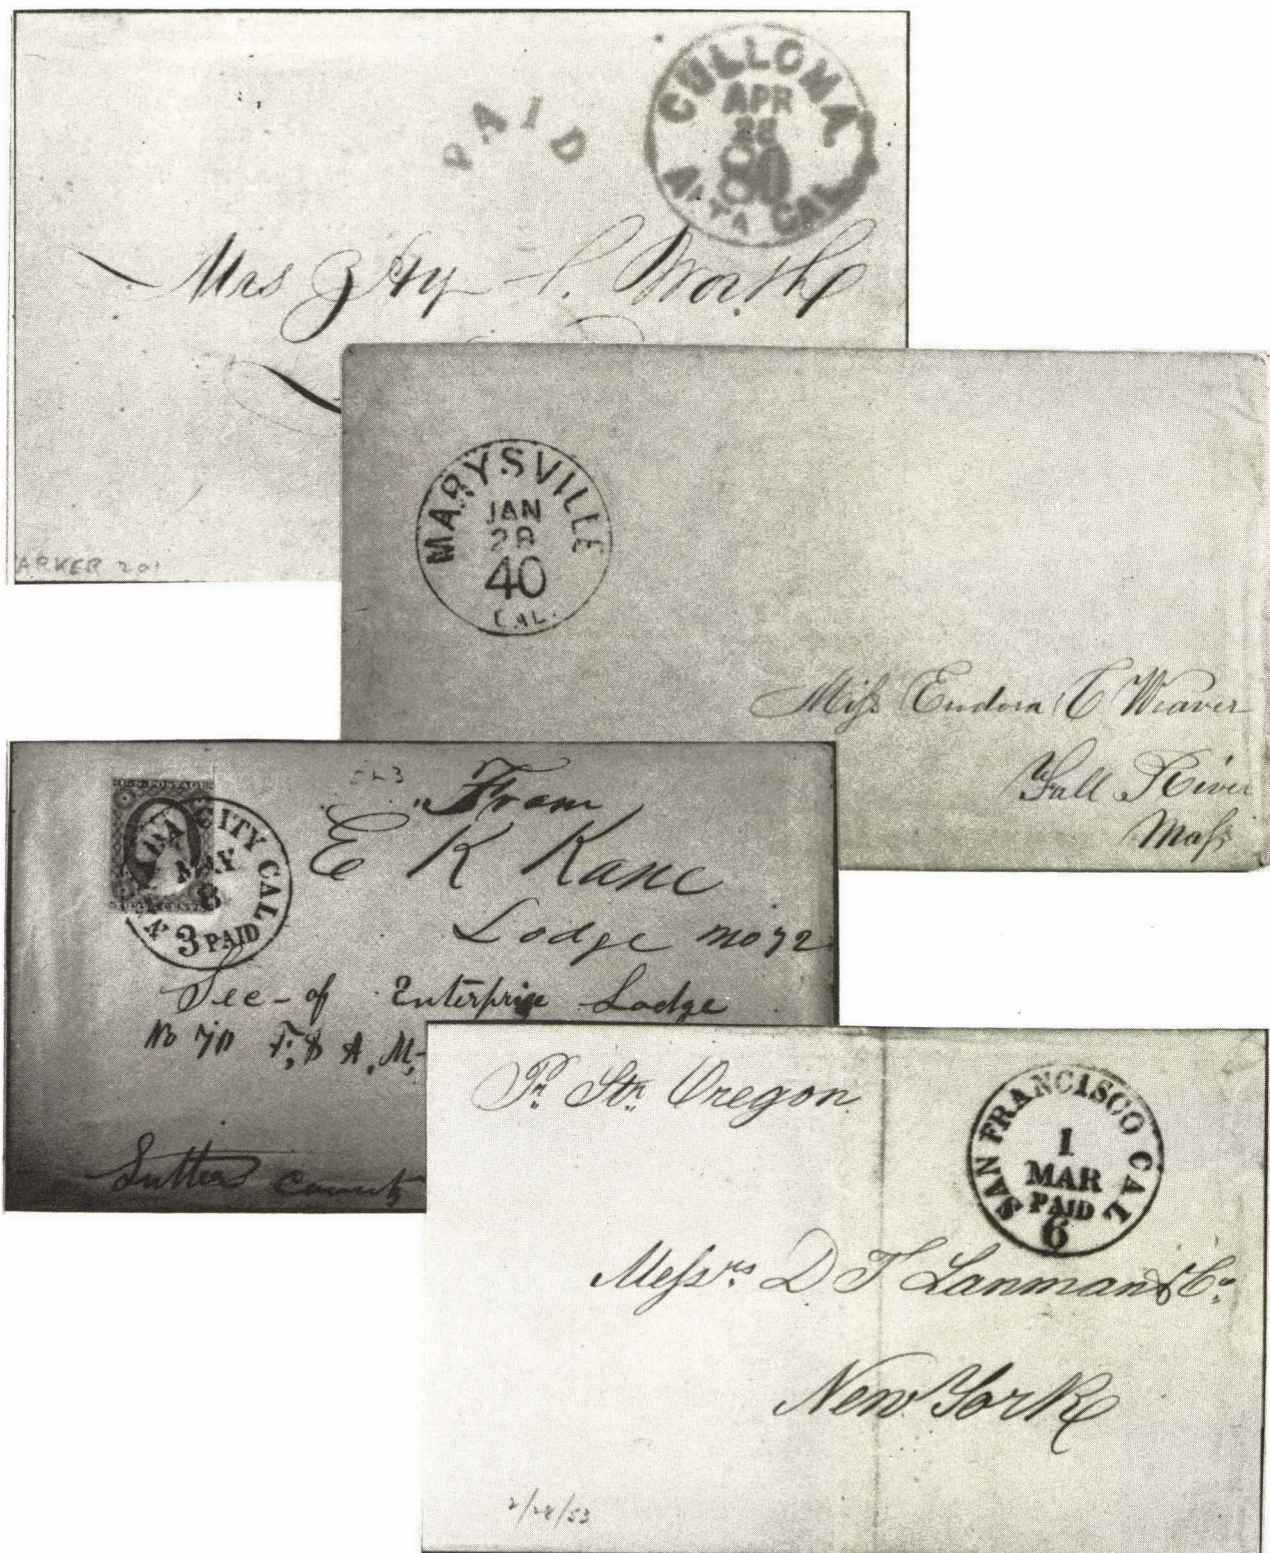 PAID
CULLOMA
APR
28
80
ALTA CAL.
Mrs
ARKER 201
MARYSVILLE
JAN
28
40
CAL.
Miss Eudora C Weaver
Fall River
Mass
From
E K Kane
Lodge no 72
BA CITY CAL
MAY
8
3 PAID
Sec - of Enterprise Lodge
No 70 F, & A, M,-
Sutter County
Pr. Str. Oregon
SAN FRANCISCO CAL
1
MAR
PAID
6
Messrs. D T Lanman & Co.
New York
2/28/53